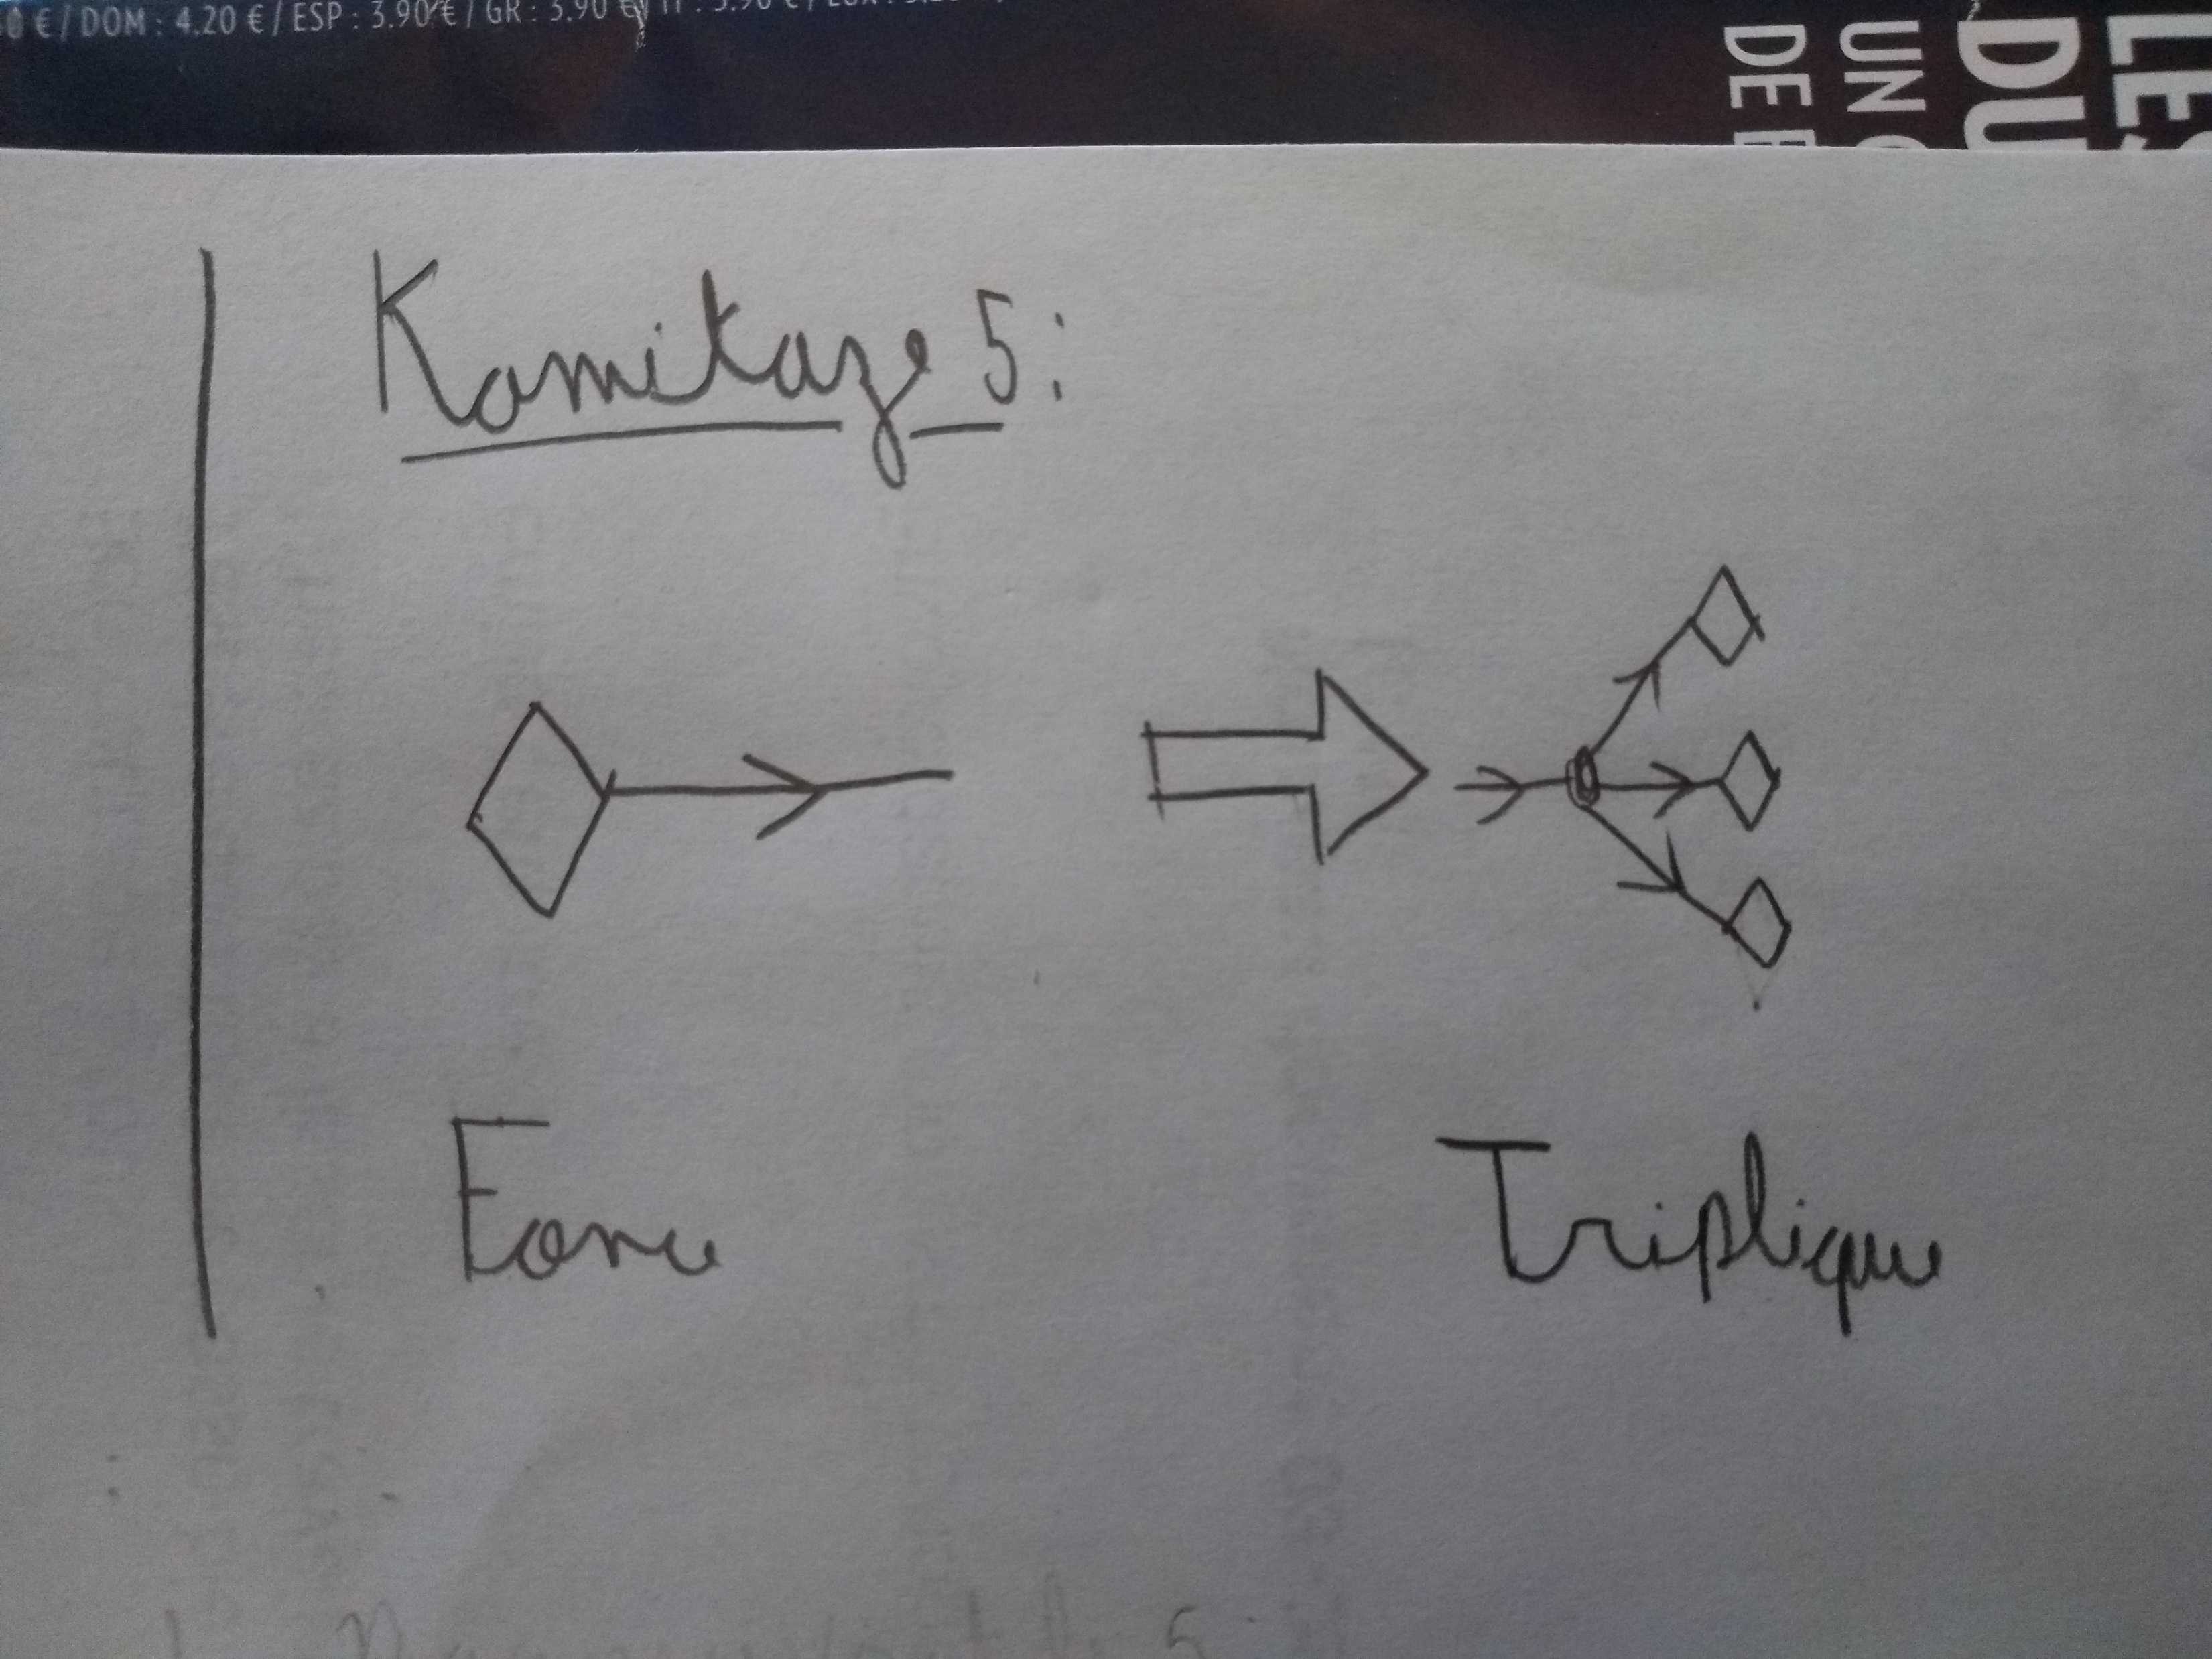 0 € / DOM : 4.20 € / ESP : 3.90 € / GR : 3.90 €
LES
DU
UN
DE
Kamikaze 5:
Fonce
Triplique